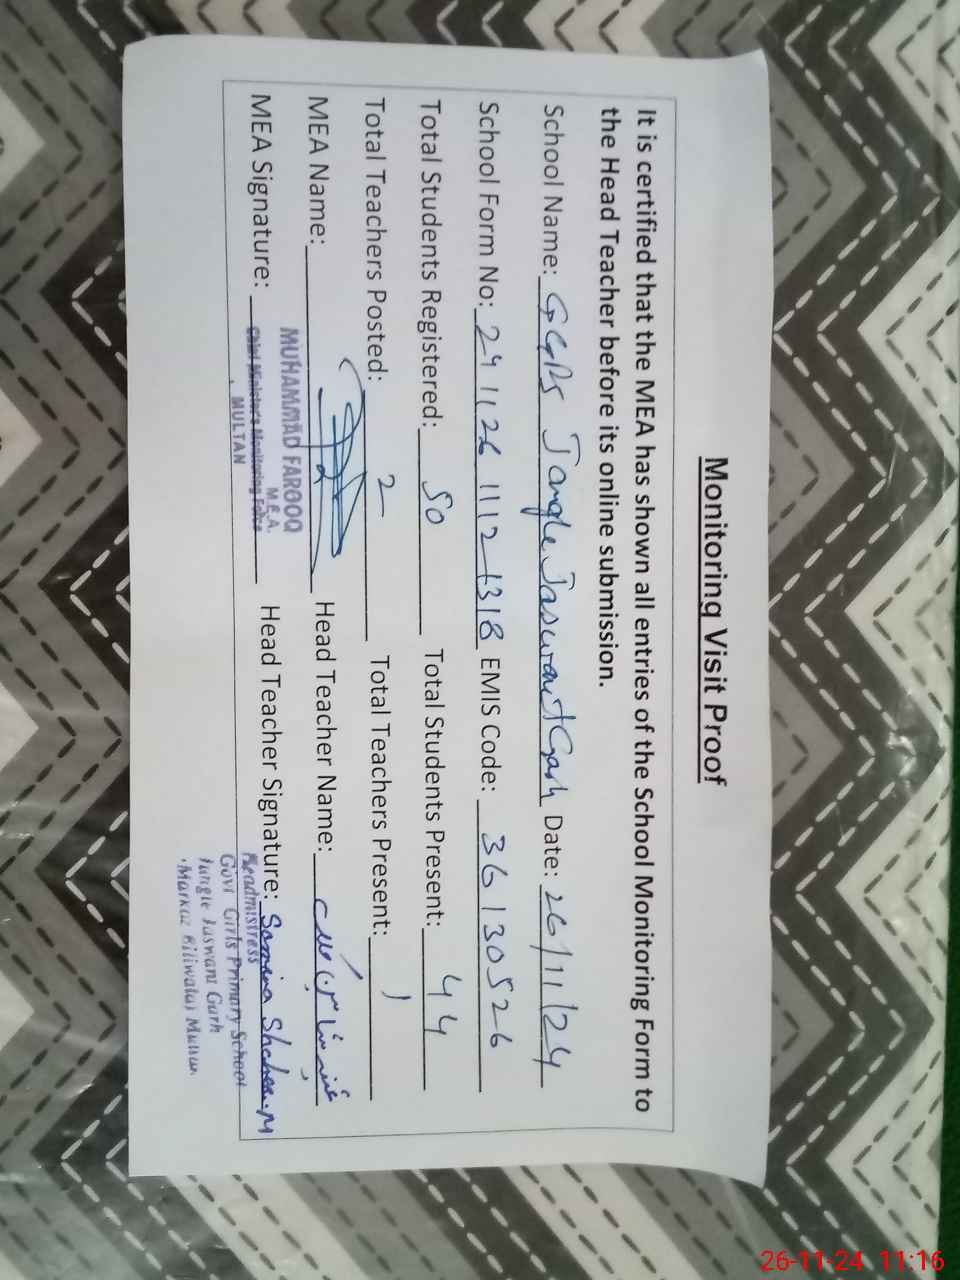 Monitoring Visit Proof
It is certified that the MEA has shown all entries of the School Monitoring Form to
the Head Teacher before its online submission.
School Name: GGPS Jangle Jaswant Garh Date: 26/11/24
School Form No: 241126 1112 1318 EMIS Code: 36130526
Total Students Registered: 50 Total Students Present: 44
Total Teachers Posted: 2 Total Teachers Present: 1
MEA Name: Head Teacher Name:
MEA Signature: Head Teacher Signature: Samina
MUHAMMAD FAROOQ
M.E.A.
Chief Minister's Monitoring Force
MULTAN
Headmistress
Govt Girls Primary School
Jungle Jaswant Garh
Markaz Biliwala, Multan.
26-11-24 11:16